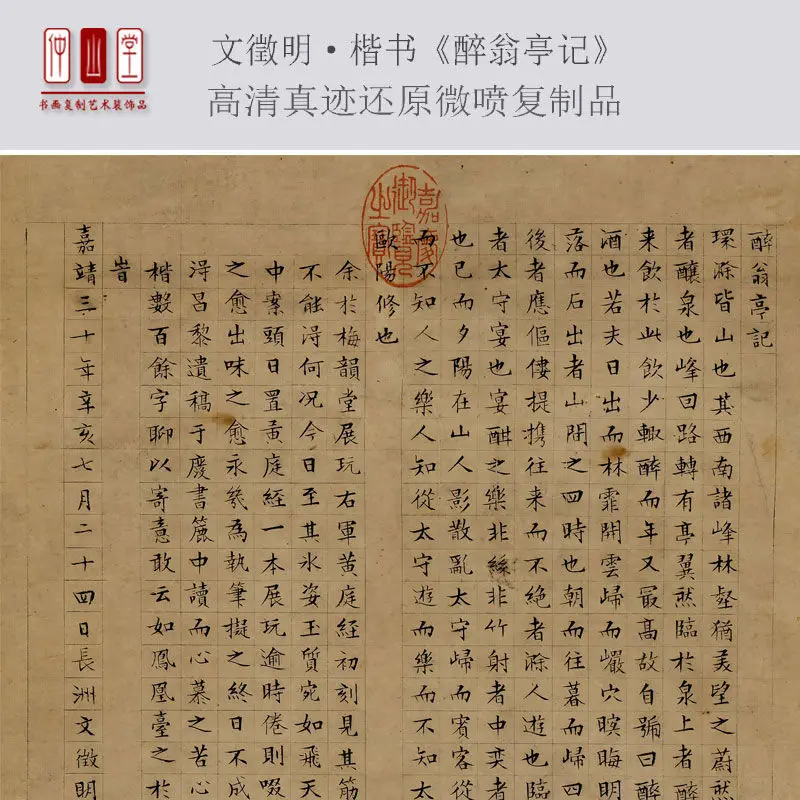 仲山堂
书画复制艺术装饰品
文徵明·楷书《醉翁亭记》
高清真迹还原微喷复制品
嘉慶御覽之寶
醉翁亭記
環滁皆山也其西南諸峰林壑猶美望之蔚然
者釀泉也峰回路轉有亭翼然臨於泉上者醉
来飲於此飲少輙醉而年又冣髙故自號曰醉
酒也若夫日出而林霏開雲歸而巖穴暝晦明
落而石出者山間之四時也朝而往暮而歸四
後者應傴僂提携往来而不絶者滁人遊也臨
者太守宴也宴酣之樂非絲非竹射者中奕者
也已而夕陽在山人影散亂太守歸而賓客從
而不知人之樂人知從太守遊而樂而不知太
歐陽修也
余於梅韻堂展玩右軍黄庭經初刻見其筋
不能淂何况今日至其氷姿玉質宛如飛天
中案頭日置黄庭經一本展玩逾時倦則啜
之愈出味之愈永幾為執筆擬之終日不成
淂昌黎遺稿于廢書簏中讀而心慕之苦心
楷數百餘字聊以寄意敢云如鳳凰臺之於
旹
嘉靖三十年辛亥七月二十四日長洲文徵明